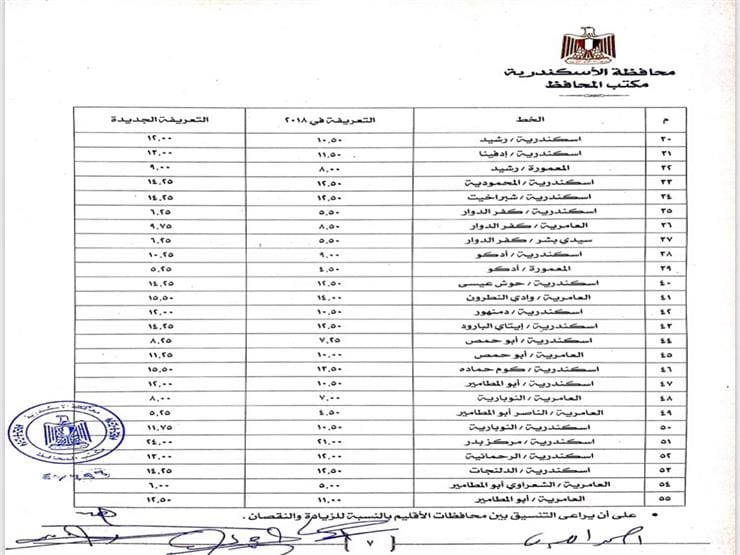 محافظة الأسكندرية
مكتب المحافظ
م الخط التعريفة في ٢٠١٨ التعريفة الجديدة
٣٠ اسكندرية/رشيد ١٠,٥٠ ١٢,٠٠
٣١ اسكندرية/إدفينا ١١,٥٠ ١٣,٠٠
٣٢ المعمورة/رشيد ٨,٠٠ ٩,٠٠
٣٣ اسكندرية/المحمودية ١٢,٥٠ ١٤,٢٥
٣٤ اسكندرية/شبراخيت ١٢,٥٠ ١٤,٢٥
٣٥ اسكندرية/كفر الدوار ٥,٥٠ ٦,٢٥
٣٦ العامرية/كفر الدوار ٨,٥٠ ٩,٧٥
٣٧ سيدي بشر/كفر الدوار ٥,٥٠ ٦,٢٥
٣٨ اسكندرية/أدكو ٩,٠٠ ١٠,٢٥
٣٩ المعمورة/أدكو ٤,٥٠ ٥,٢٥
٤٠ اسكندرية/حوش عيسى ١٢,٥٠ ١٤,٢٥
٤١ العامرية/وادي النطرون ١٤,٠٠ ١٥,٥٠
٤٢ اسكندرية/دمنهور ١٠,٥٠ ١٢,٠٠
٤٣ اسكندرية/إيتاي البارود ١٢,٥٠ ١٤,٢٥
٤٤ اسكندرية/أبو حمص ٧,٢٥ ٨,٢٥
٤٥ العامرية/أبو حمص ١٠,٠٠ ١١,٢٥
٤٦ اسكندرية/كوم حماده ١٣,٥٠ ١٥,٥٠
٤٧ اسكندرية/أبو المطامير ١٠,٥٠ ١٢,٠٠
٤٨ العامرية/النوبارية ٧,٠٠ ٨,٠٠
٤٩ العامرية/الناصر أبو المطامير ٤,٥٠ ٥,٢٥
٥٠ اسكندرية/النوبارية ١٠,٥٠ ١١,٧٥
٥١ اسكندرية/مركز بدر ٢١,٠٠ ٢٤,٠٠
٥٢ اسكندرية/الرحمانية ١٢,٥٠ ١٣,٠٠
٥٣ اسكندرية/الدلنجات ١٢,٥٠ ١٤,٢٥
٥٤ العامرية/الشعراوي أبو المطامير ٥,٠٠ ٦,٠٠
٥٥ العامرية/أبو المطامير ١١,٠٠ ١٢,٥٠
• على أن يراعى التنسيق بين محافظات الأقليم بالنسبة للزيادة والنقصان .
محافظة الاسكندرية
مكتب المحافظ
[ ٧ ]